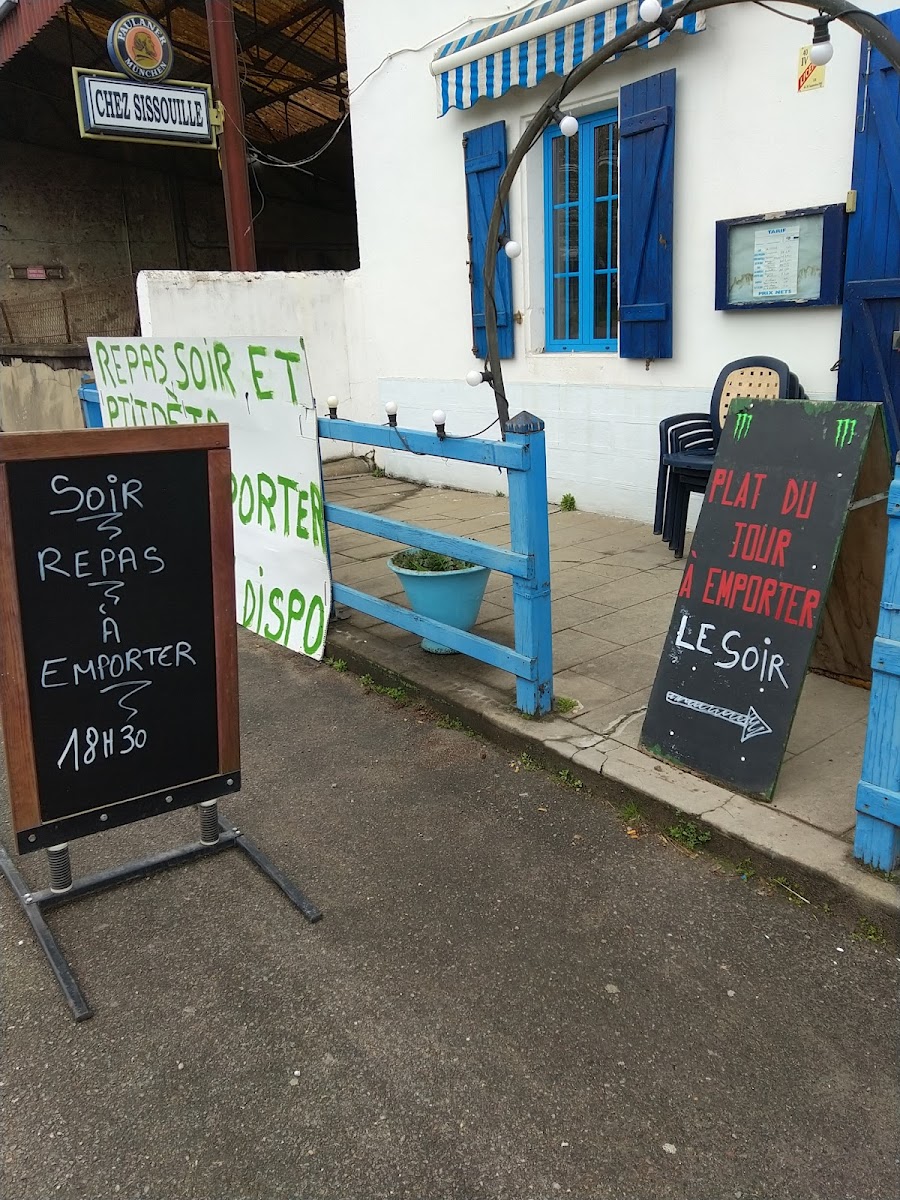 PAULANER
MÜNCHEN
CHEZ SISSOUILLE
LICENCE
TARIF
PRIX NETS
REPAS SOIR ET
PORTER
DISPO
SOIR
REPAS
À
EMPORTER
18H30
PLAT DU
JOUR
À EMPORTER
LE SOIR